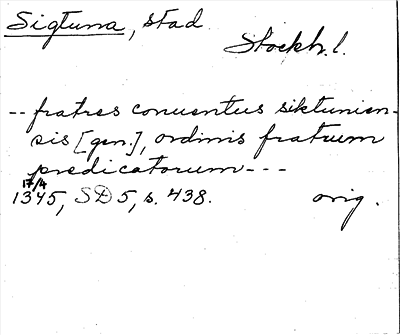 Sigtuna, stad
Stockh. l.
-- fratres conuentus siktunien-
sis [gen.], ordinis fratrum
predicatorum ---
17/4
1345, SD 5, s. 438. orig.